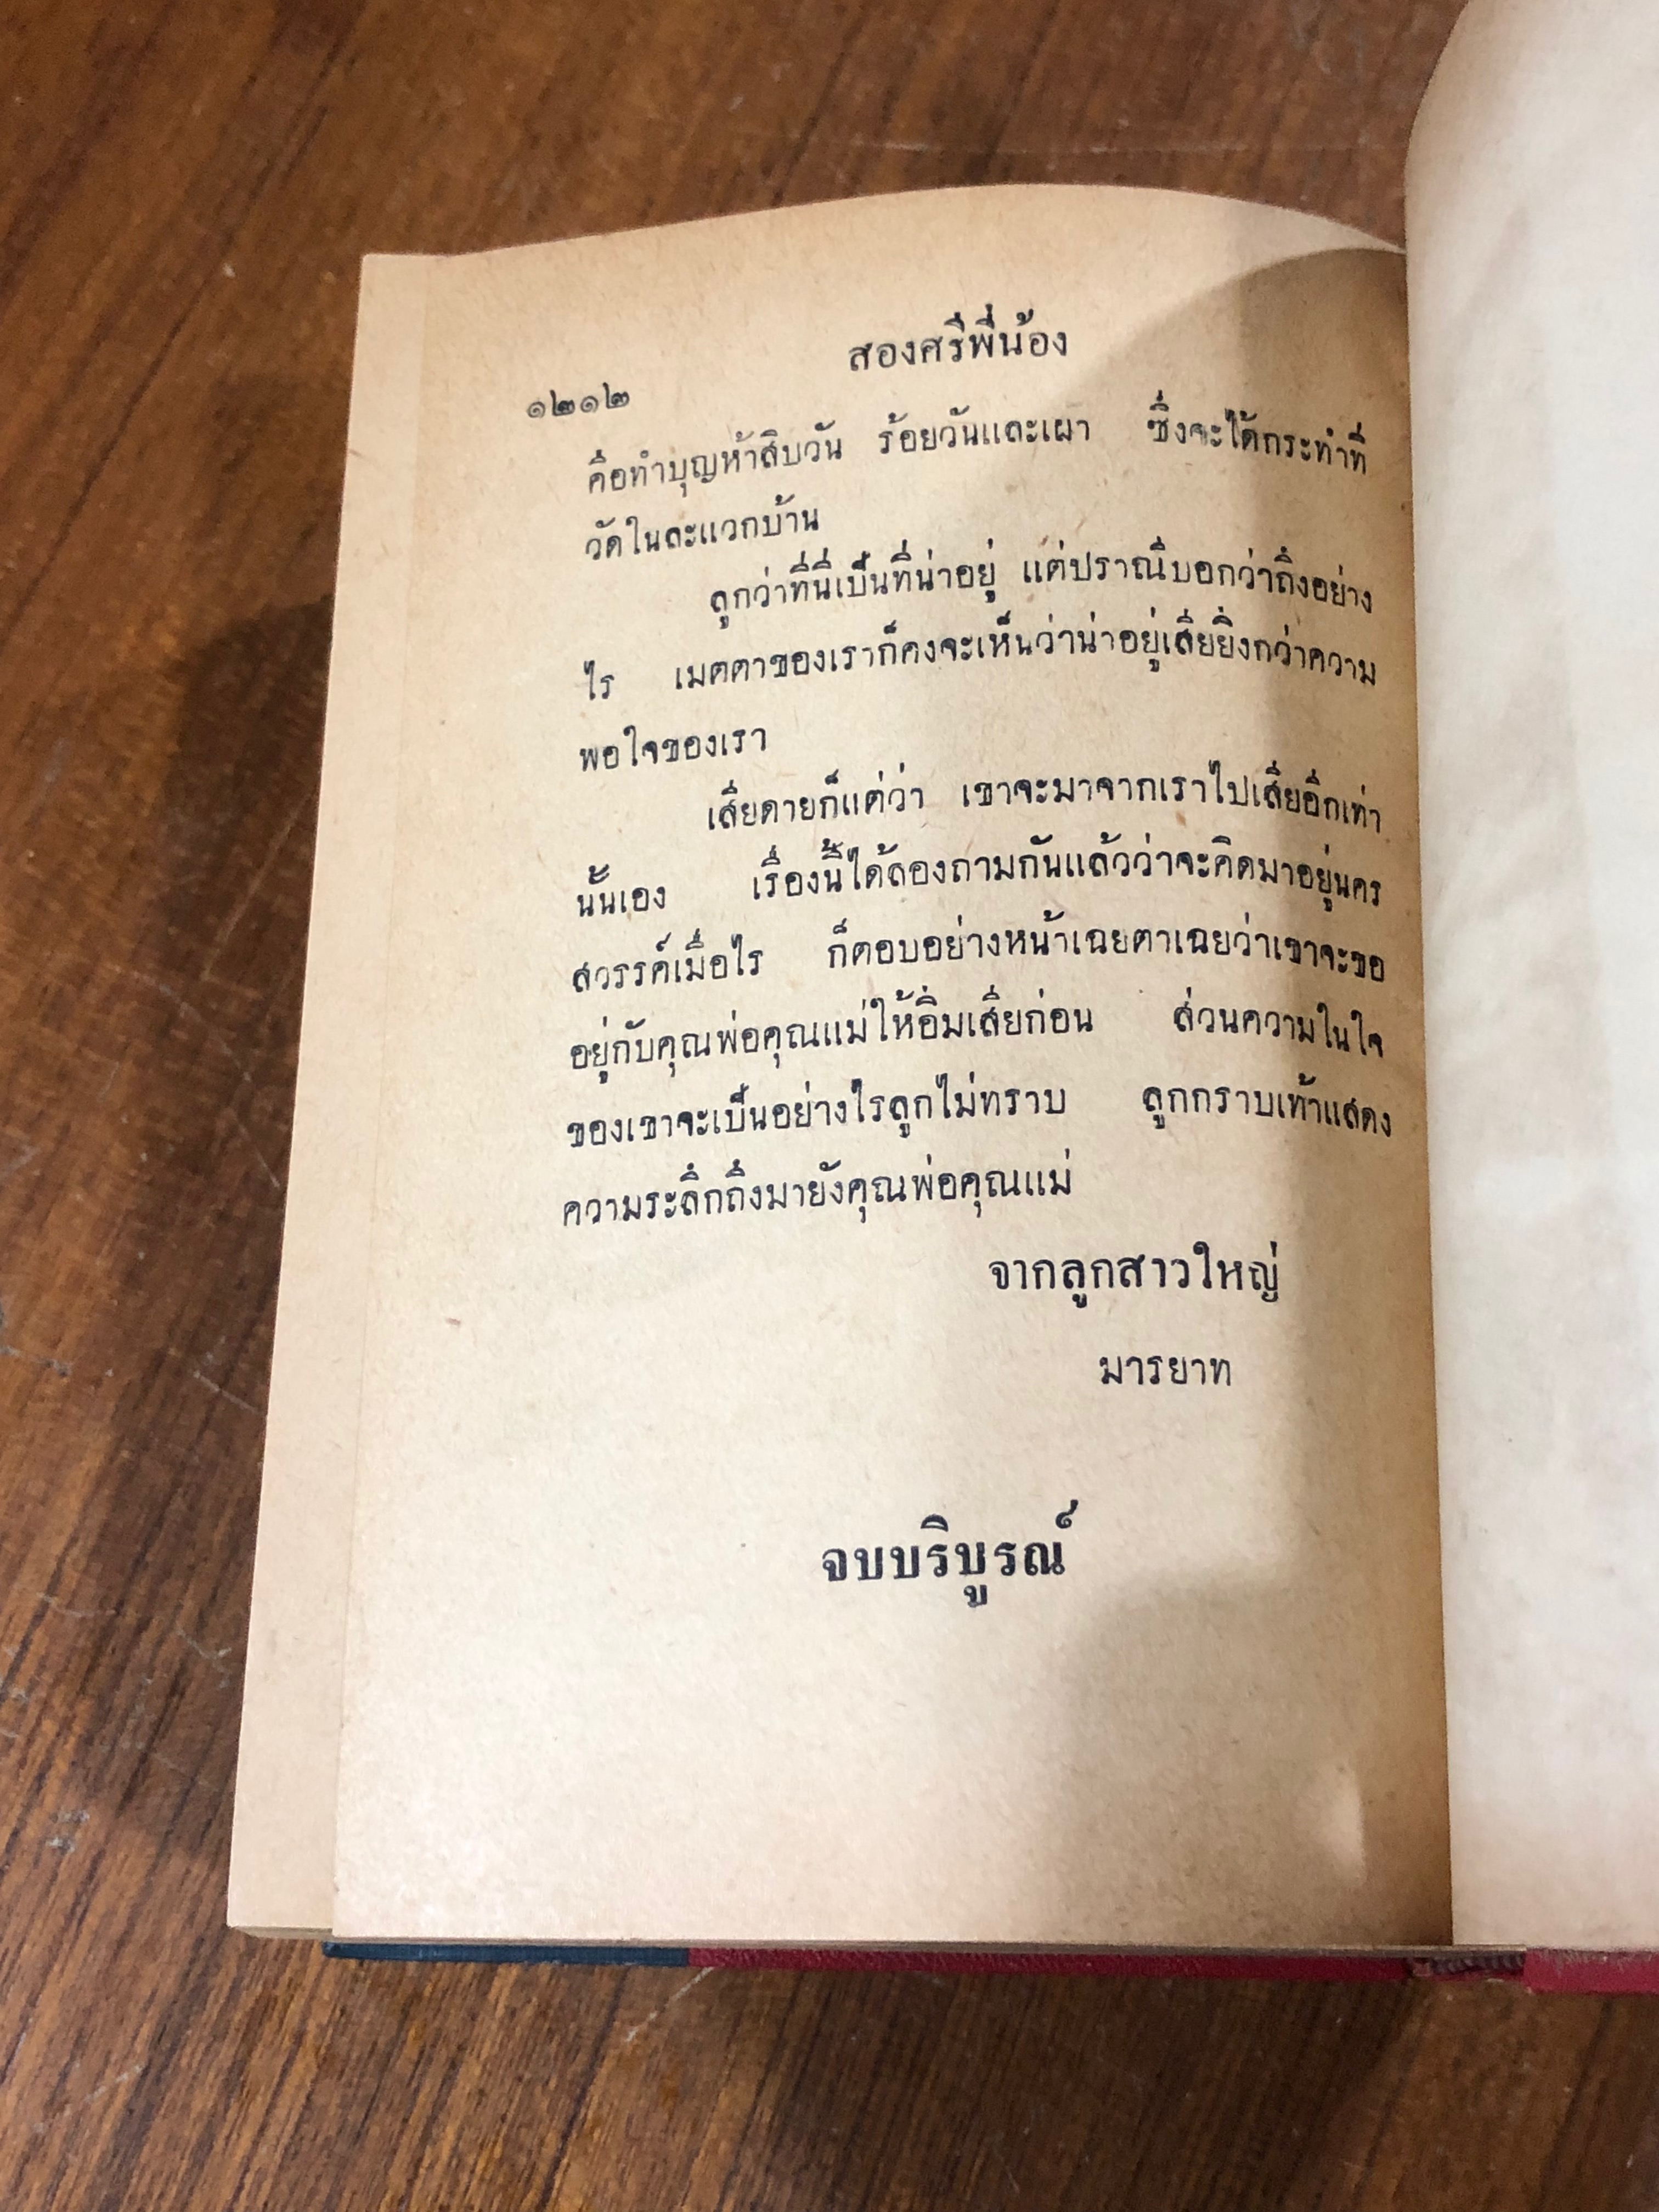 สองศรีพี่น้อง
๑๒๑๒
คือทำบุญห้าสิบวัน ร้อยวันและเผา ซึ่งจะได้กระทำที่
วัดในละแวกบ้าน
ลูกว่าที่นี่เป็นที่น่าอยู่ แต่ปราณีบอกว่าถึงอย่าง
ไร เมตตาของเราก็คงจะเห็นว่าน่าอยู่เสียยิ่งกว่าความ
พอใจของเรา
เสียดายก็แต่ว่า เขาจะมาจากเราไปเสียอีกเท่า
นั้นเอง เรื่องนี้ได้ลองถามกันแล้วว่าจะคิดมาอยู่นคร
สวรรค์เมื่อไร ก็ตอบอย่างหน้าเฉยตาเฉยว่าเขาจะขอ
อยู่กับคุณพ่อคุณแม่ให้อิ่มเสียก่อน ส่วนความในใจ
ของเขาจะเป็นอย่างไรลูกไม่ทราบ ลูกกราบเท้าแสดง
ความระลึกถึงมายังคุณพ่อคุณแม่
จากลูกสาวใหญ่
มารยาท
จบบริบูรณ์